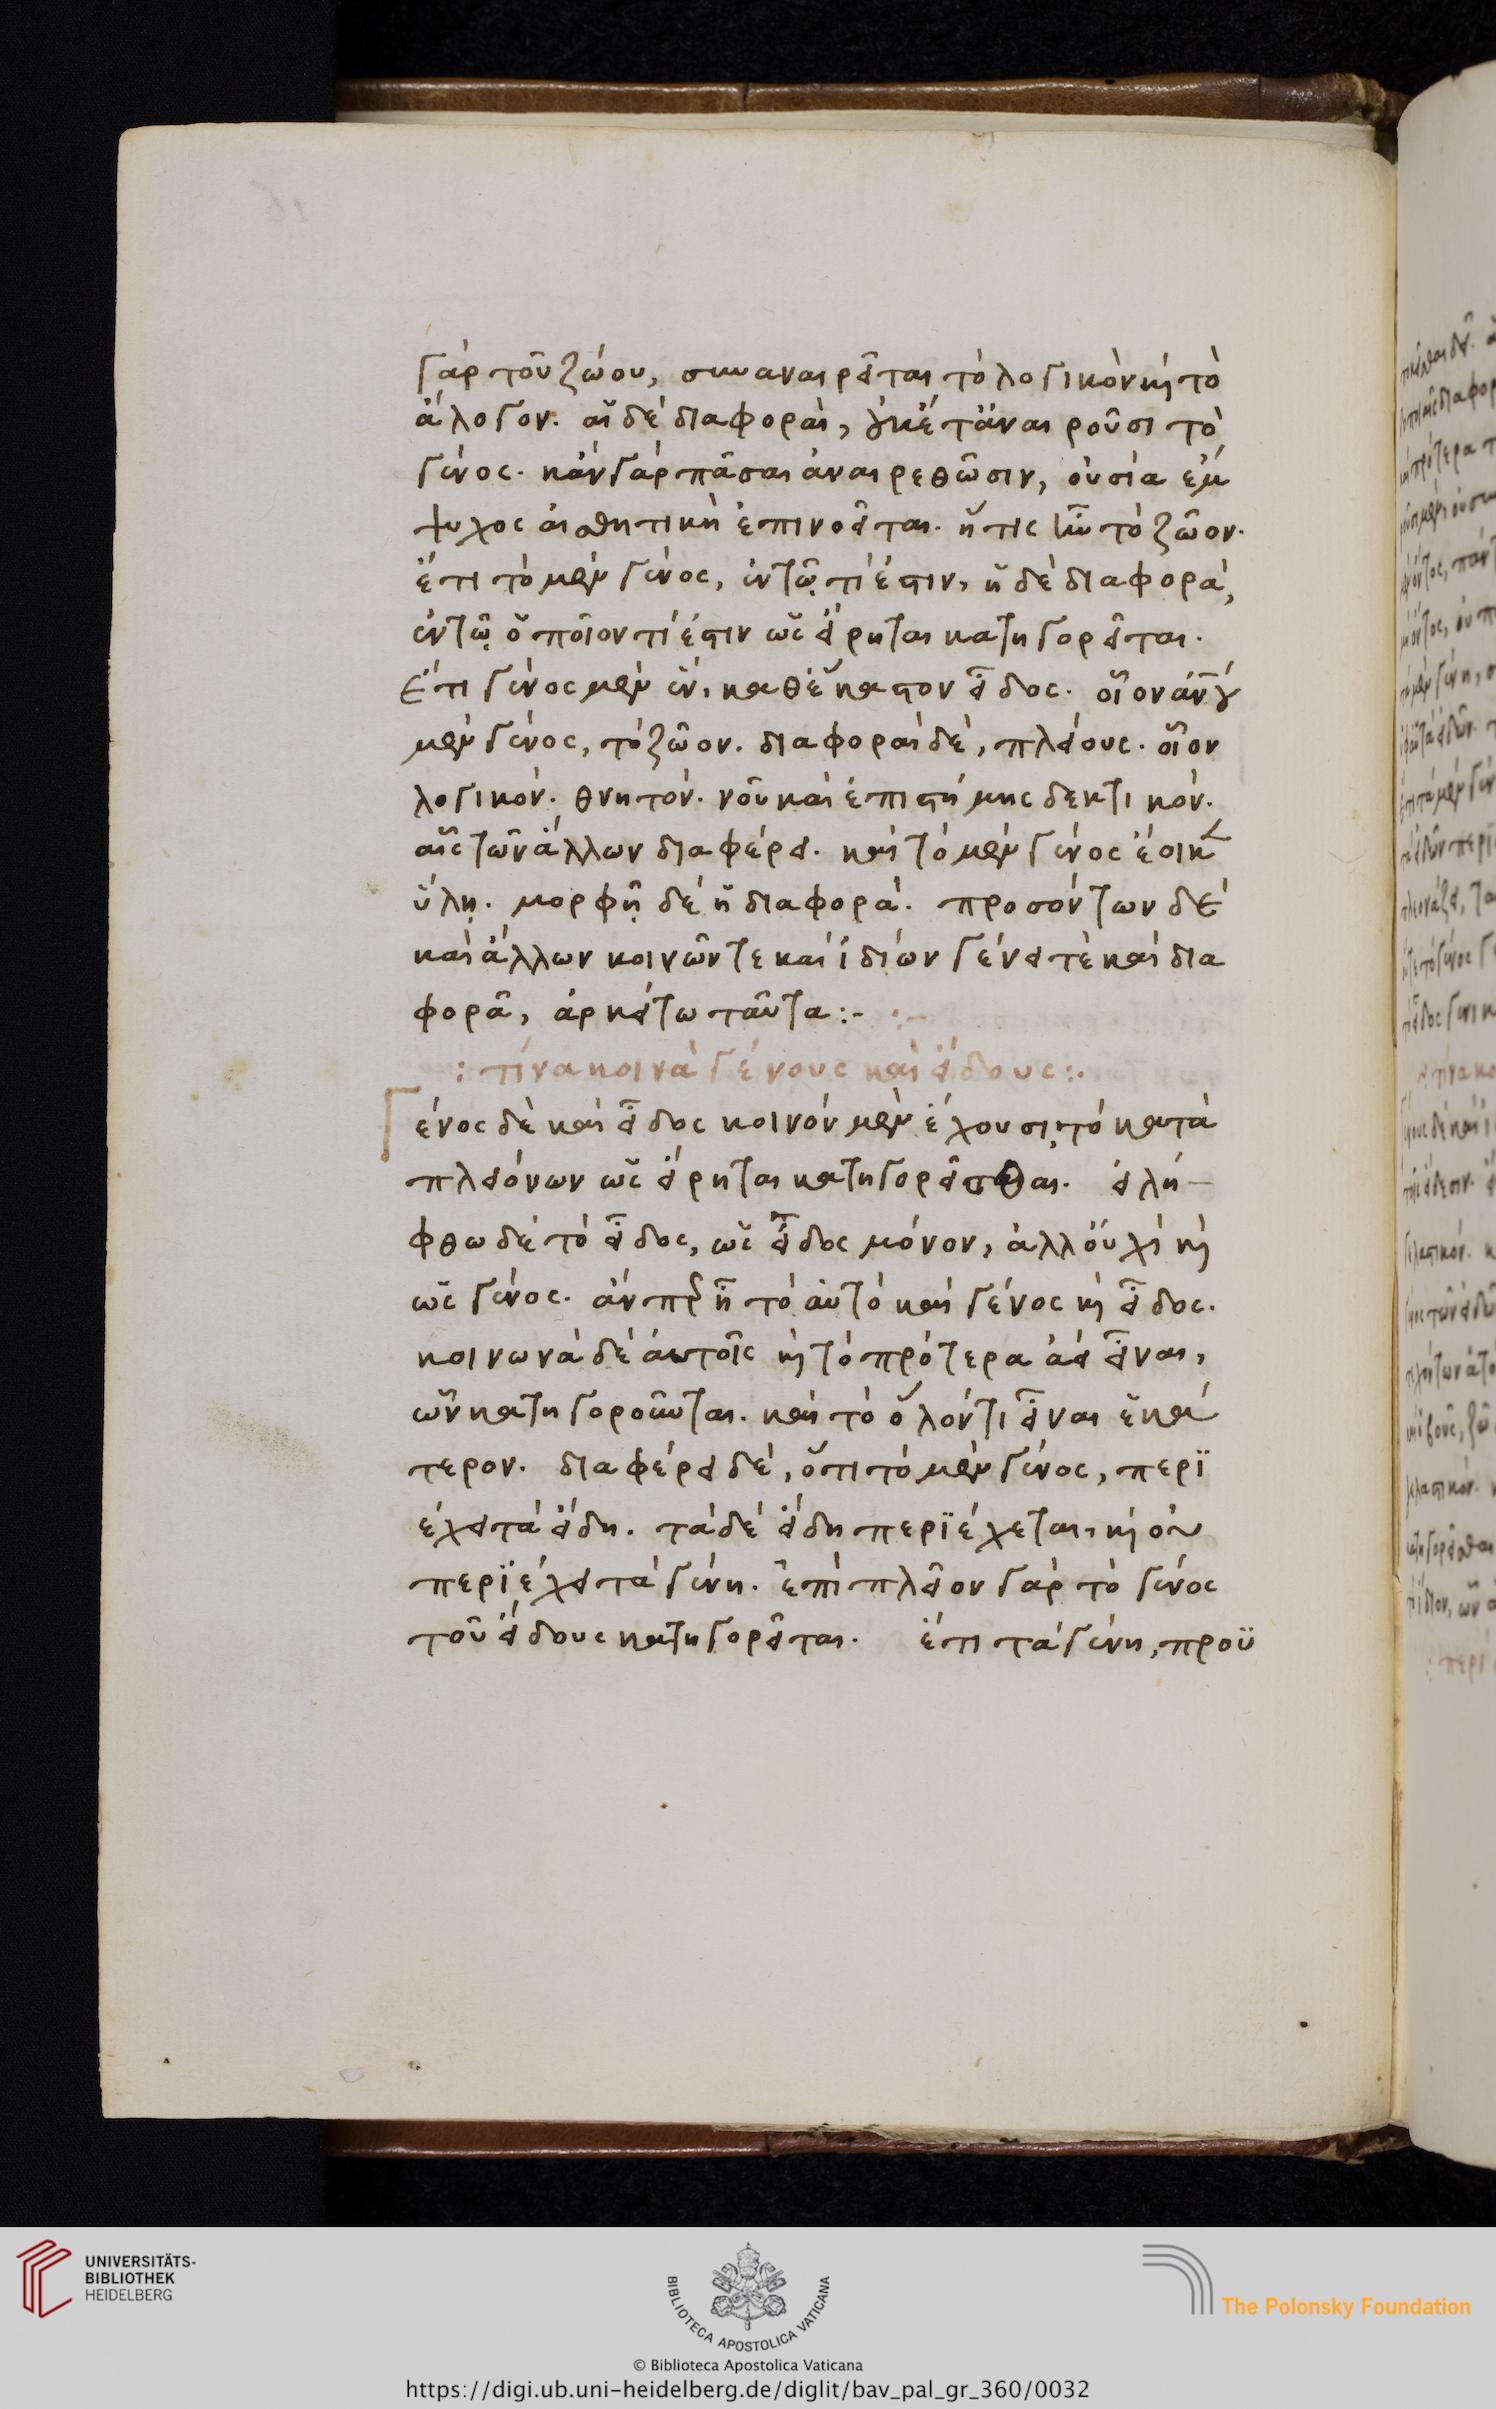 γὰρ τοῦ ζώου, συναναιρεῖται τὸ λογικὸν κὶ τὸ
ἄλογον. αἱ δὲ διαφοραὶ, οὐκέτ' ἀναιροῦσι τὸ
γένος. κἂν γὰρ πᾶσαι ἀναιρεθῶσιν, οὐσία ἔμ
ψυχος αἰσθητικὴ ἐπινοεῖται. ἥτις ἦν τὸ ζῶον.
ἔτι τὸ μὲν γένος, ἐν τῷ τί ἐστιν, ἡ δὲ διαφορὰ,
ἐν τῷ ὁποῖον τί ἐστιν ὡς εἴρηται κατηγορεῖται.
Ἔτι γένος μὲν ἓν, καθ' ἕκαστον εἶδος. οἷον ἀνου
μὲν γένος, τὸ ζῶον. διαφοραὶ δὲ, πλείους. οἷον
λογικόν. θνητόν. νοῦ καὶ ἐπιστήμης δεκτικόν.
αἷς τῶν ἄλλων διαφέρει. καὶ τὸ μὲν γένος ἔοικε
ὕλῃ. μορφῇ δὲ ἡ διαφορά. προσόντων δὲ
καὶ ἄλλων κοινῶν τε καὶ ἰδίων γένει τὲ καὶ δια
φορᾶ, ἀρκείτω ταῦτα:-
: τίνα κοινὰ γένους καὶ εἴδους:.
Γένος δὲ καὶ εἶδος κοινὸν μὲν ἔχουσι, τὸ κατὰ
πλειόνων ὡς εἴρηται κατηγορεῖσθαι. εἰλή-
φθω δὲ τὸ εἶδος, ὡς εἶδος μόνον, ἀλλ' οὐχὶ κὶ
ὡς γένος. ἄνπερ ἦ τὸ αὐτὸ καὶ γένος κὶ εἶδος.
κοινωνεῖ δὲ αὐτοῖς κὶ τὸ πρότερα ἀεὶ εἶναι,
ὧν κατηγοροῦνται. καὶ τὸ ὅλόν τι εἶναι ἑκά
τερον. διαφέρει δὲ, ὅτι τὸ μὲν γένος, περι
έχει τὰ εἴδη. τὰ δὲ εἴδη περιέχεται, κὶ οὐ
περιέχει τὰ γένη. ἐπὶ πλεῖον γὰρ τὸ γένος
τοῦ εἴδους κατηγορεῖται. ἔτι τὰ γένη, προϋ
UNIVERSITÄTS-
BIBLIOTHEK
HEIDELBERG
BIBLIOTECA APOSTOLICA VATICANA
The Polonsky Foundation
© Biblioteca Apostolica Vaticana
https://digi.ub.uni-heidelberg.de/diglit/bav_pal_gr_360/0032